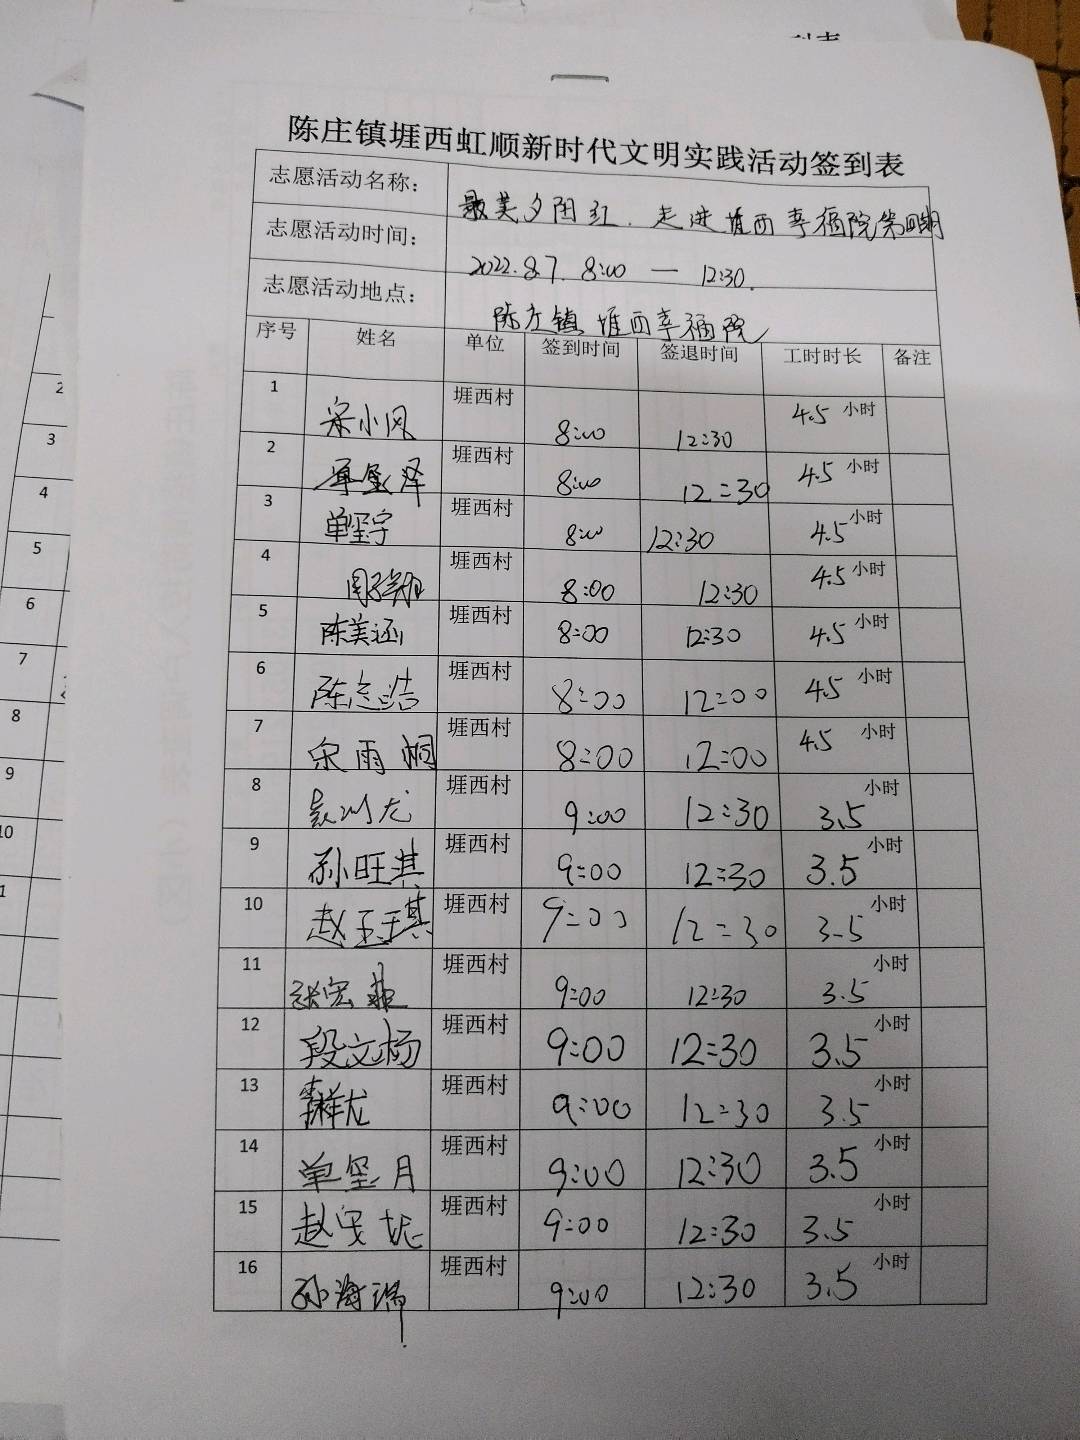 陈庄镇堐西虹顺新时代文明实践活动签到表
志愿活动名称： 最美夕阳红．走进堐西幸福院第四期
志愿活动时间： 2022.8.7. 8:00 — 12:30.
志愿活动地点： 陈庄镇堐西幸福院
序号 姓名 单位 签到时间 签退时间 工时时长 备注
1 宋小风 堐西村 8:00 12:30 4.5 小时
2 泽 堐西村 8:00 12:30 4.5 小时
3 单玺宇 堐西村 8:00 12:30 4.5 小时
4 周 堐西村 8:00 12:30 4.5 小时
5 陈美涵 堐西村 8:00 12:30 4.5 小时
6 陈志浩 堐西村 8:00 12:00 4.5 小时
7 宋雨桐 堐西村 8:00 12:00 4.5 小时
8 龙 堐西村 9:00 12:30 3.5 小时
9 孙旺淇 堐西村 9:00 12:30 3.5 小时
10 赵玉琪 堐西村 9:00 12:30 3.5 小时
11 张宏 堐西村 9:00 12:30 3.5 小时
12 段文杨 堐西村 9:00 12:30 3.5 小时
13 祥龙 堐西村 9:00 12:30 3.5 小时
14 单玺月 堐西村 9:00 12:30 3.5 小时
15 赵安妮 堐西村 9:00 12:30 3.5 小时
16 孙海瑞 堐西村 9:00 12:30 3.5 小时
2
3
4
5
6
7
8
9
10
1